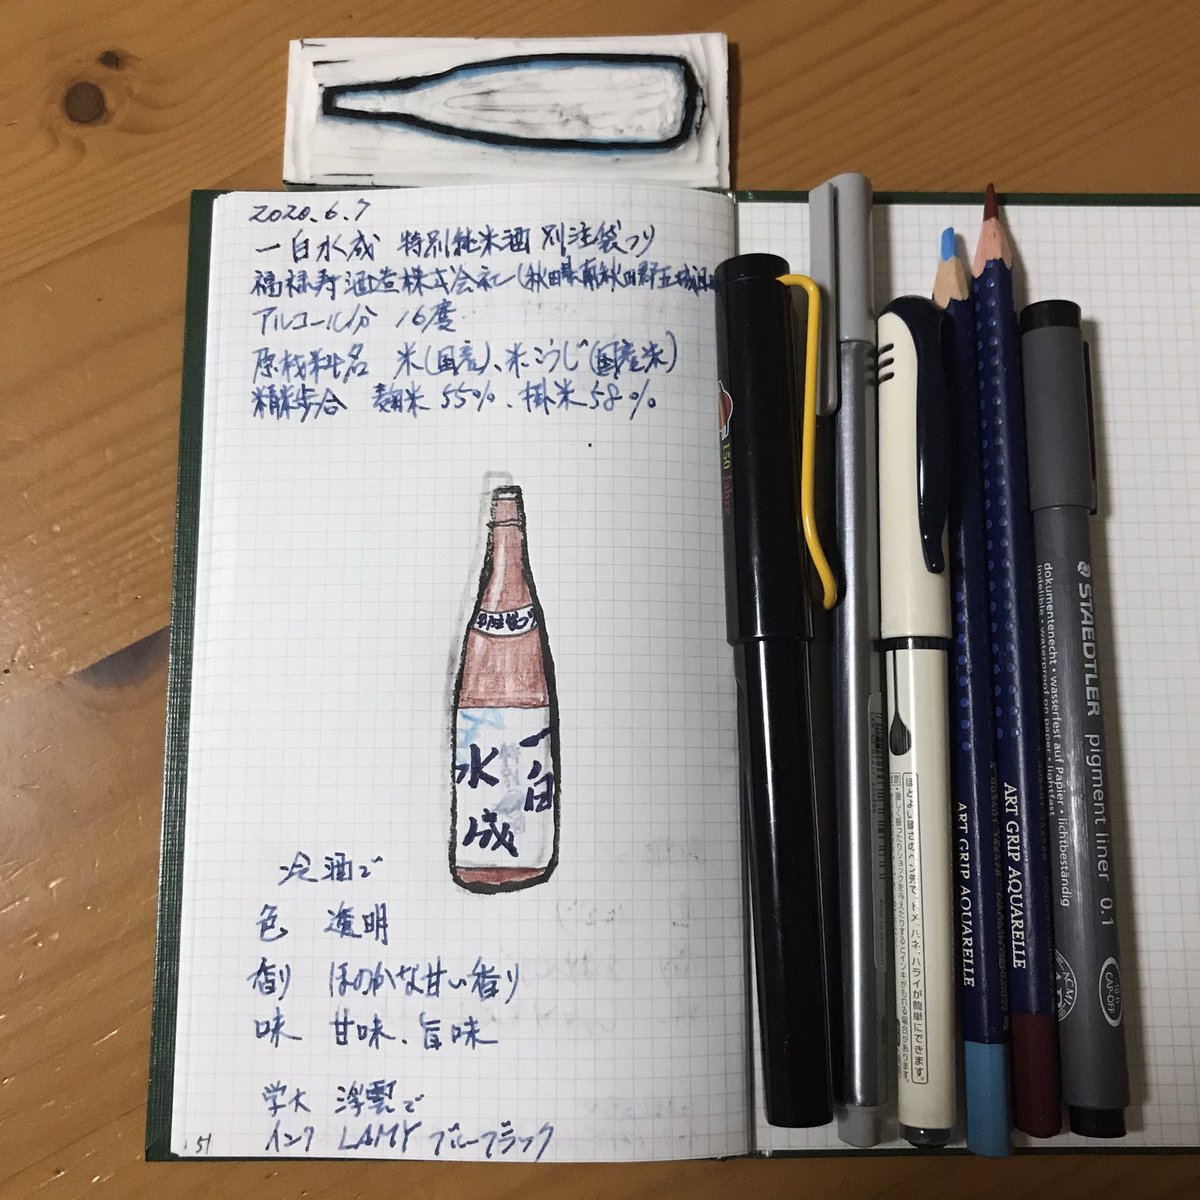 2020.6.7
一白水成 特別純米酒 別注袋つり
福禄寿酒造株式会社(秋田県南秋田郡五城目
アルコール分 16度
原材料名 米(国産)、米こうじ(国産米)
精米歩合 麹米55%、掛米58%
別注袋つり
一白
水成
冷酒で
色 透明
香り ほのかな甘い香り
味 甘味、旨味
学大 浮雲で
インク LAMY ブルーブラック
51
150 Jahre
ART GRIP AQUARELLE
ART GRIP AQUARELLE
STAEDTLER pigment liner 0.1
dokumentenecht • wasserfest auf Papier • lichtbeständig
indelible • waterproof on paper • lightfast
18 h CAP-OFF
ACMI
ほどよい書き心地のペン先で、トメ、ハネ、ハライが簡単にできます。